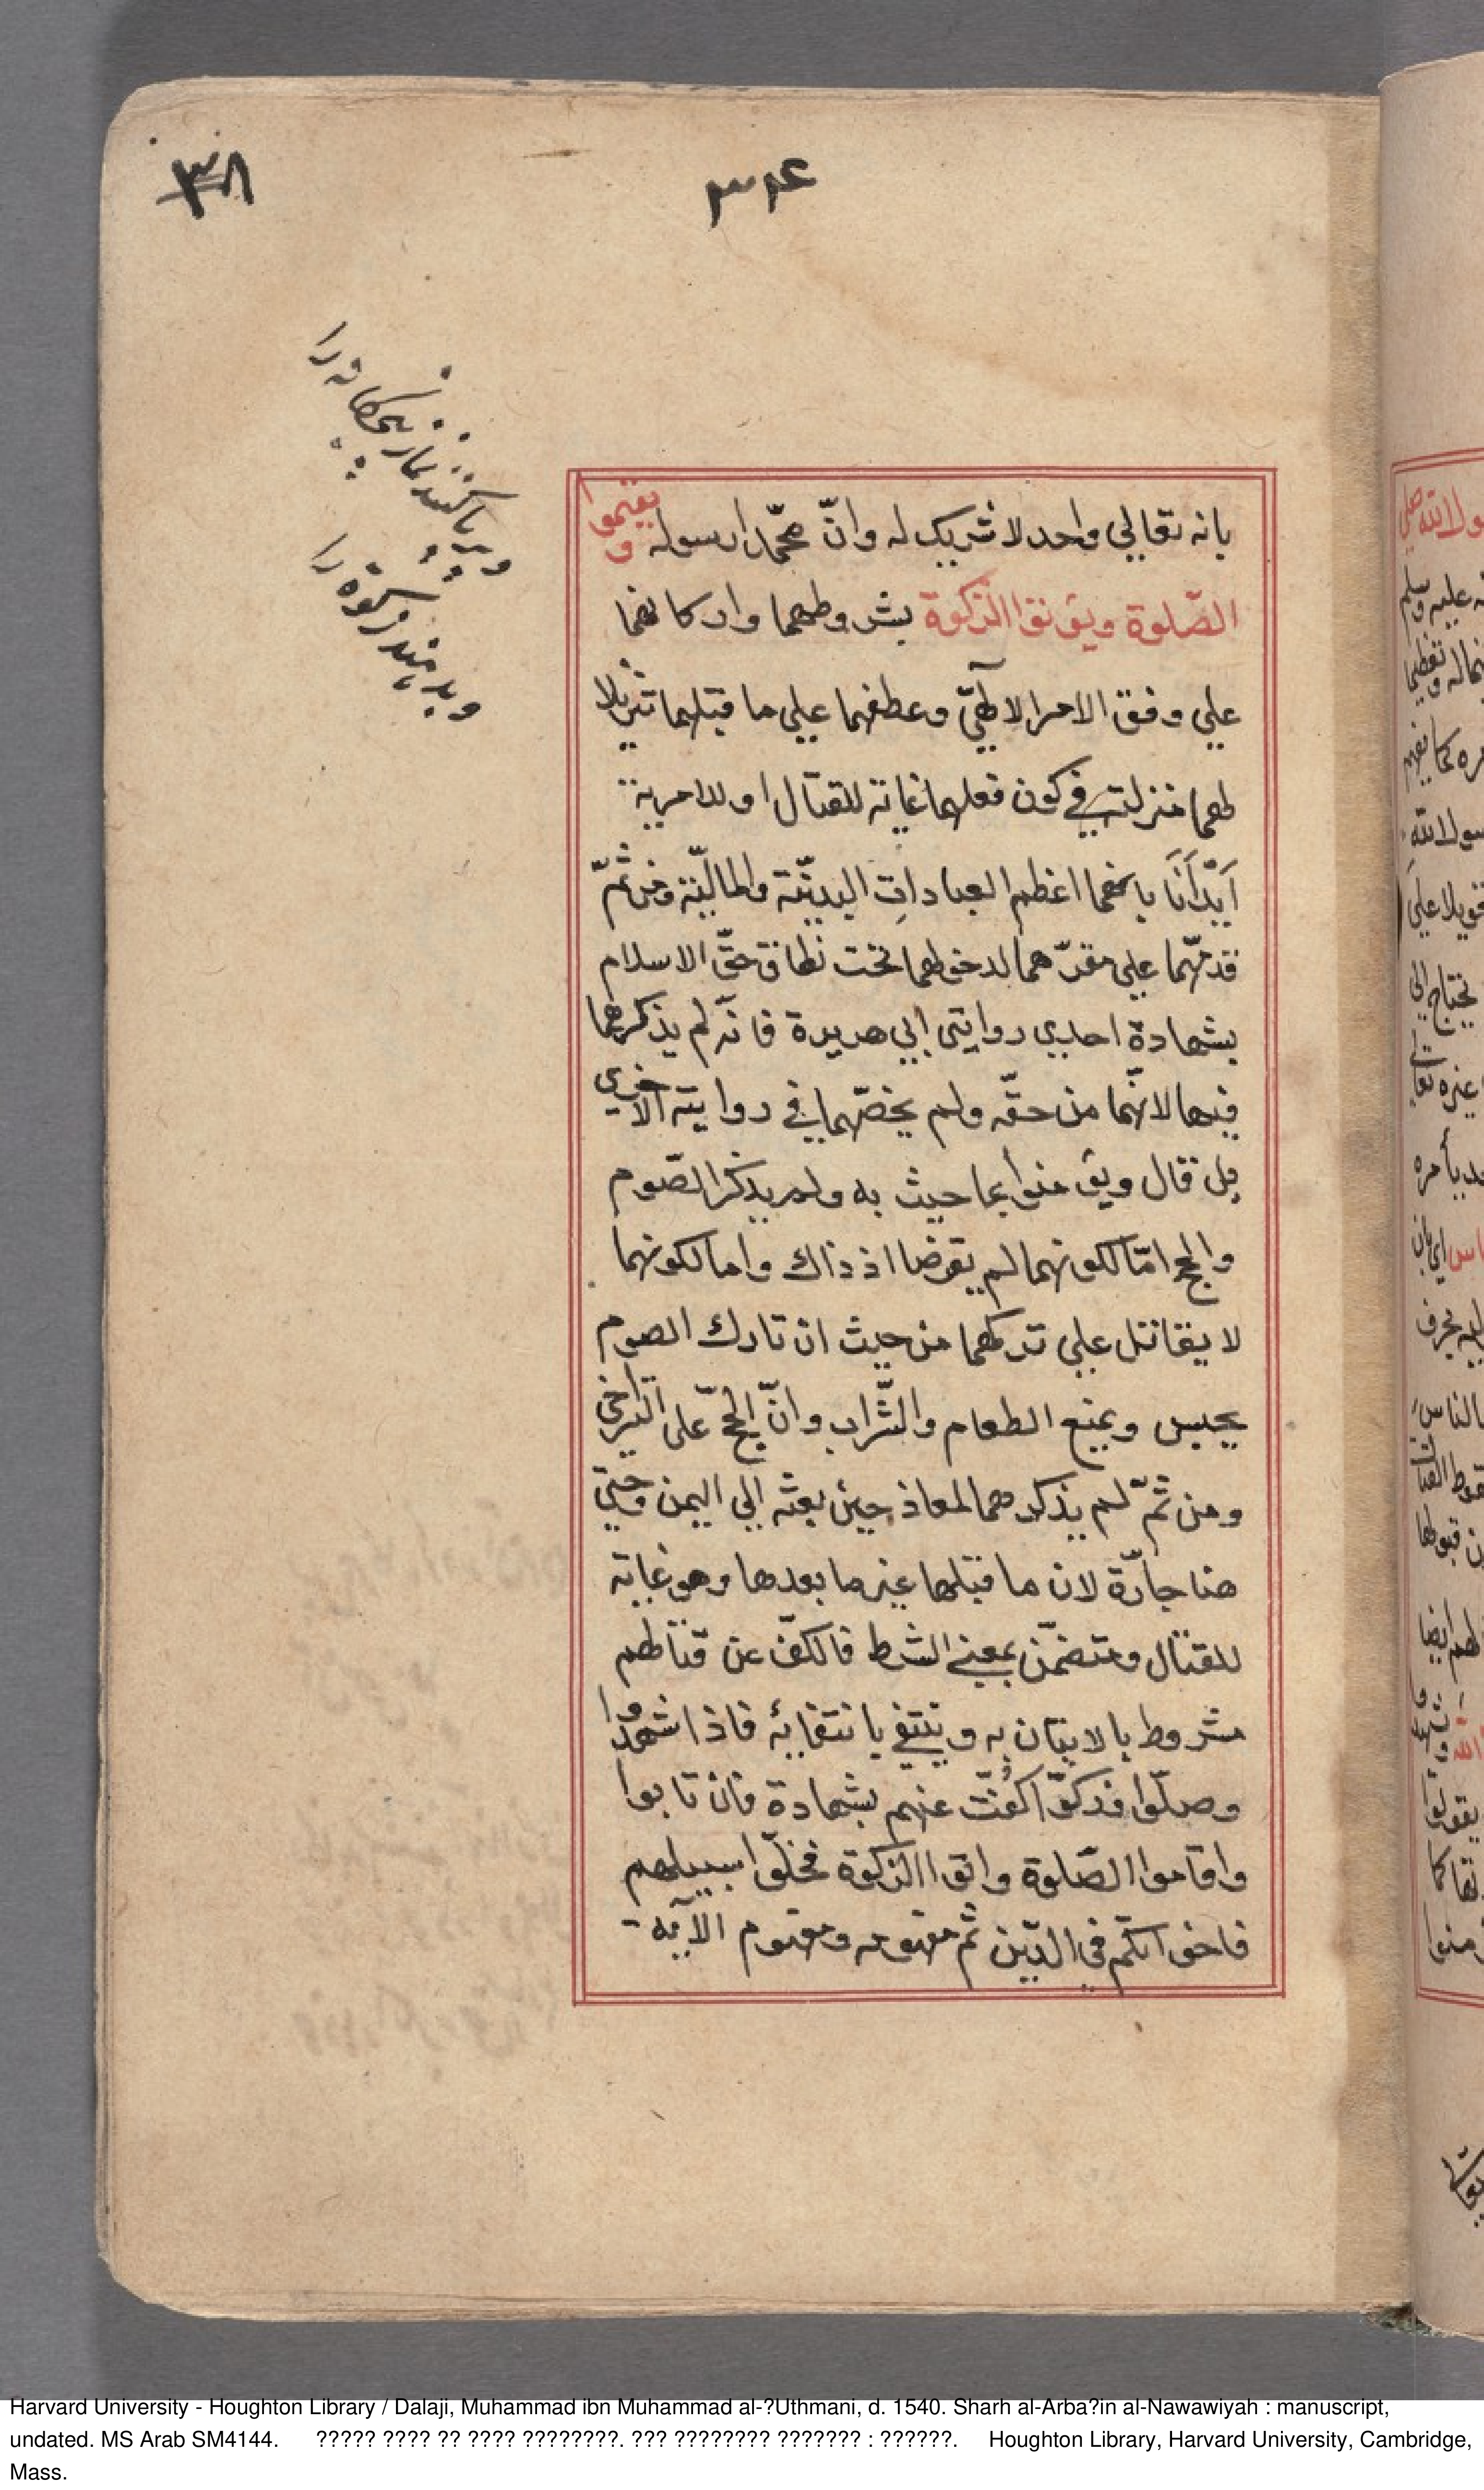 ٣٨
بانه تعالي واحد لا شريك له وانّ محمّدا رسوله ويقيموا
الصّلوة ويؤتوا الزكوة بشروطهما واركانهما
علي وفق الامر الالٓهيّ وعطفهما علي ما قبلهما تنزيلا
لهما منزلته في كون فعلهما غاية للقتال او للامر به
اَيْذَانًا بانهما اعظم العباداتِ البدنيّة والماليّة ومن ثمّ
قدمّهما علي مقدّرهما لدخولهما تحت نطاق حقّ الاسلام
بشهادة احدي روايتي ابي هريرة فانّه لم يذكرهما
فيها لانّهما من حقّه ولم يخصّهما في روايته الاخري
بل قال ويؤمنوا بما جيت به ولم يذكر الصّوم
والحج امّا لكونهما لم يفرضا اذ ذاك واما لكونهما
لا يقاتل علي تركهما من حيث ان تارك الصوم
يحبس ويمنع الطعام والشّراب وانّ الحجّ على التراخي
ومن ثمّ لم يذكرهما لمعاذ حين بعثه الي اليمن وحتي
هنا جارّة لان ما قبلها غير ما بعدها وهو غاية
للقتال ومتضمّن بمعني الشرط فالكفّ عن قتالهم
مشروط بالاتيان به وينتفي بانتفائه فاذا شهدوا
وصلّوا وزكوّا كُفّت عنهم بشهادة فان تابوا
واقاموا الصّلوة واتوا الزكوة فخلّوا سبيلهم
فاخوانكم في الدّين ثم مفهومه ومفهوم الآيه
وبرپا كنند نماز پنجكانه را
وبدهند زكوة را
Harvard University - Houghton Library / Dalaji, Muhammad ibn Muhammad al-?Uthmani, d. 1540. Sharh al-Arba?in al-Nawawiyah : manuscript,
undated. MS Arab SM4144. ????? ???? ?? ???? ????????. ??? ???????? ??????? : ??????. Houghton Library, Harvard University, Cambridge,
Mass.